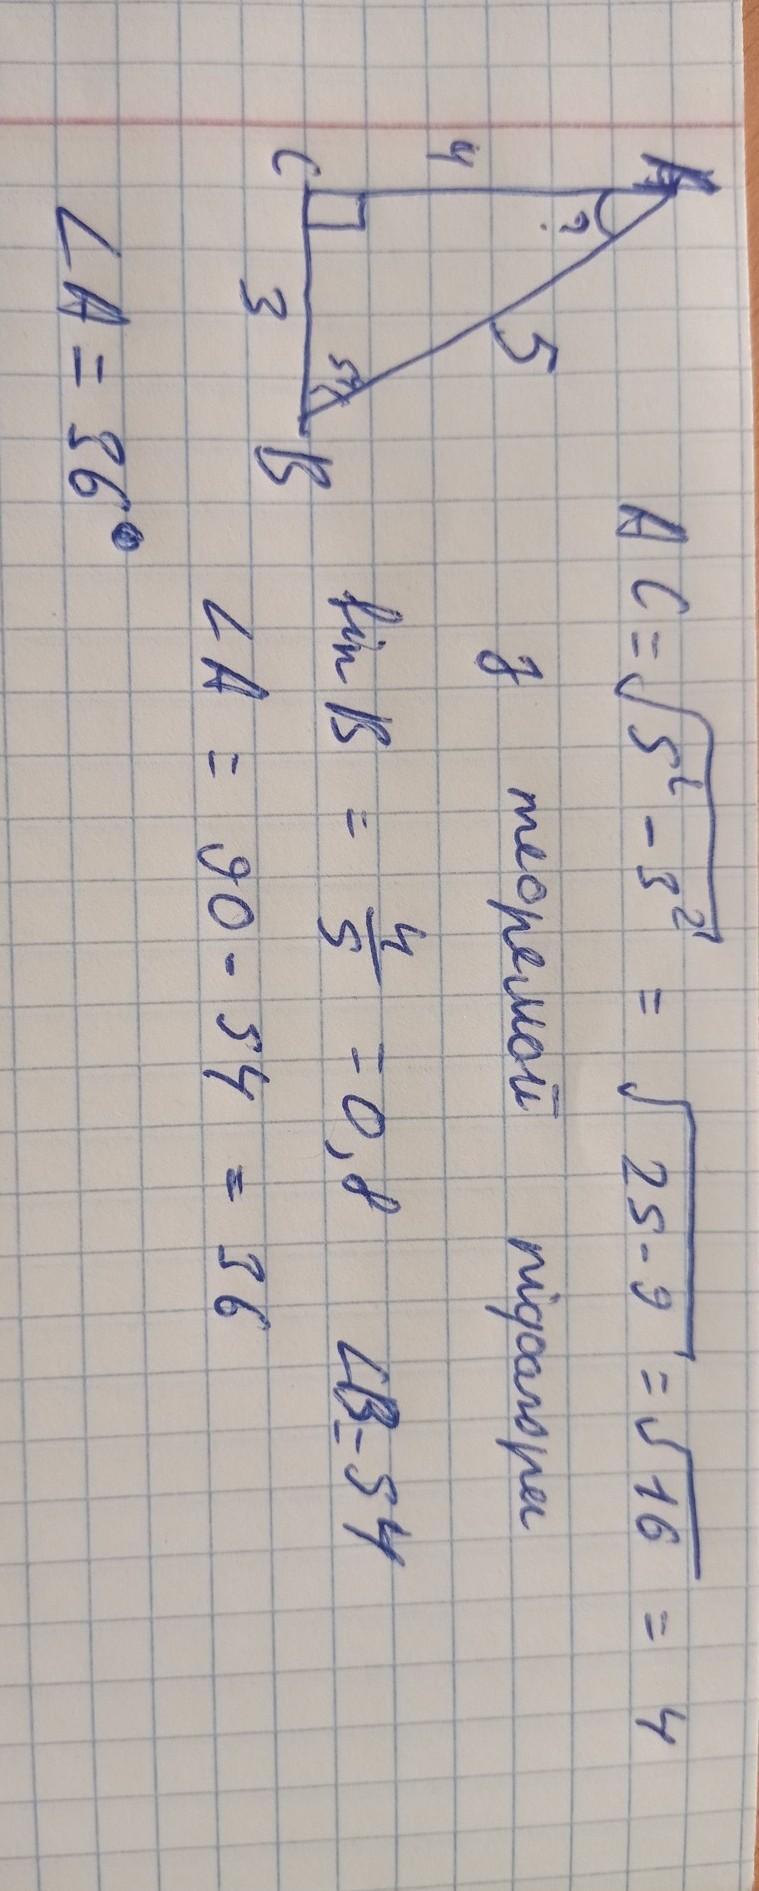 A
4
?
5
C
3
54
B
AC = √5² - 3² = √25 - 9 = √16 = 4
з теоремой підоагори
sin B = 4/5 = 0,8 ∠B = 54
∠A = 90 - 54 = 36
∠A = 36°